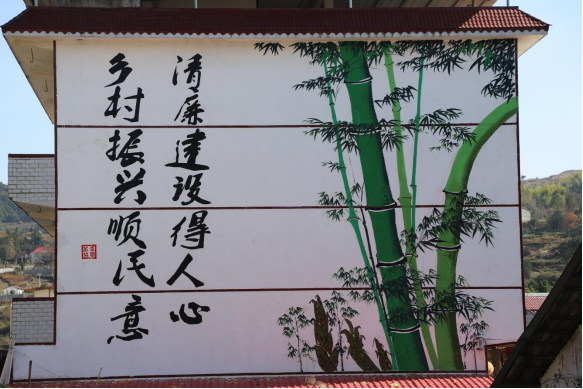 清廉建设得人心
乡村振兴顺民意